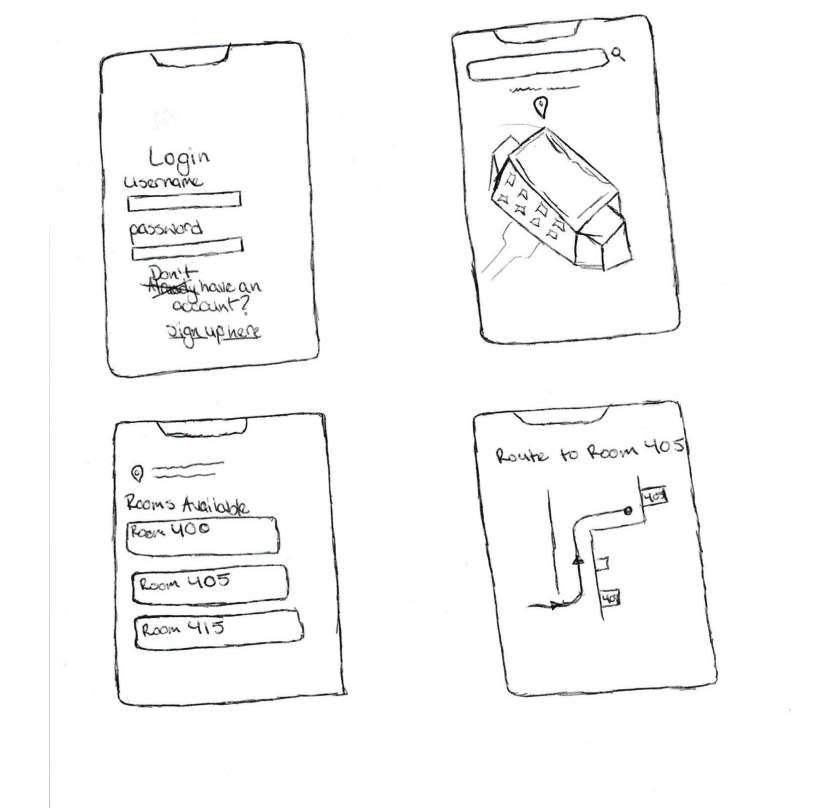 Login
username
password
Don't
Already have an
account?
Sign up here
Rooms Available
Room 400
Room 405
Room 415
Route to Room 405
405